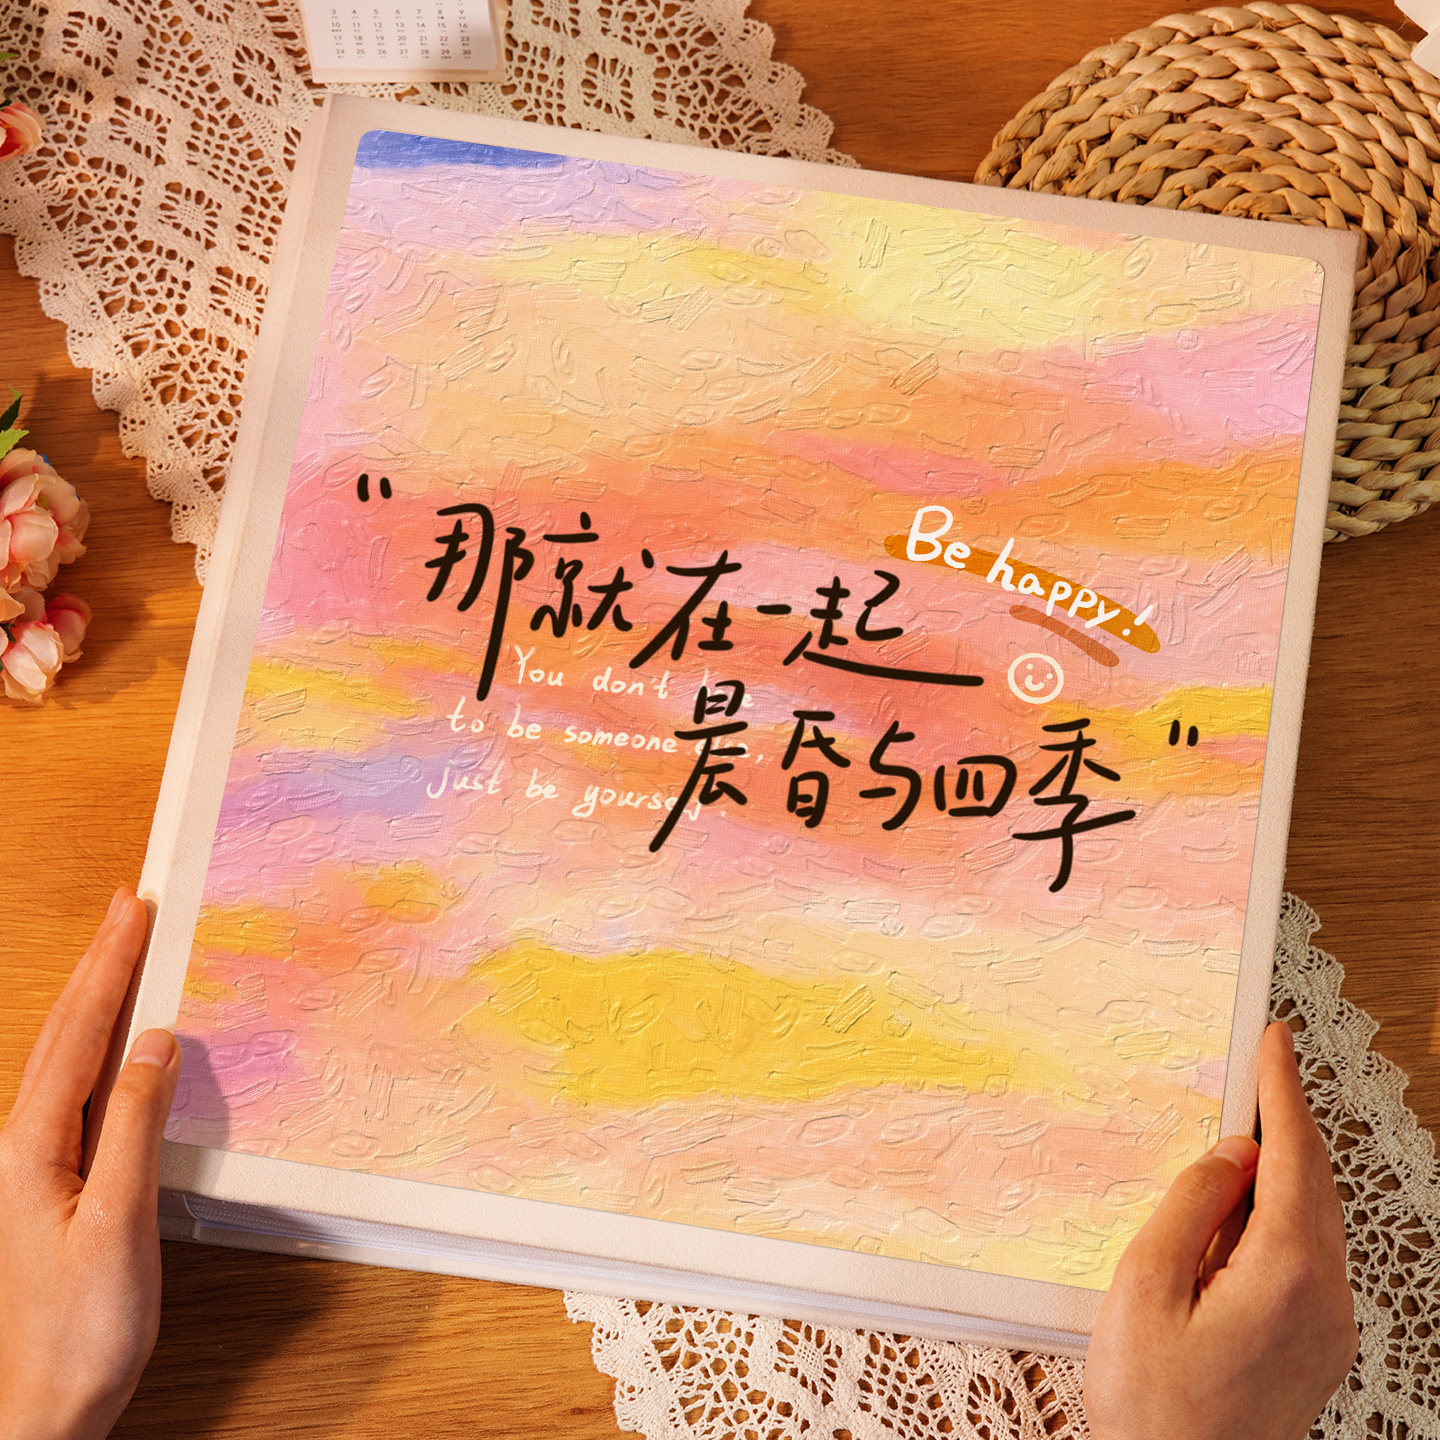 3 4 5 6 7 8 9
10 11 12 13 14 15 16
17 18 19 20 21 22 23
24 25 26 27 28 29 30
Be happy!
"那就在一起
You don't
晨昏与四季"
to be someone
Just be yourself.